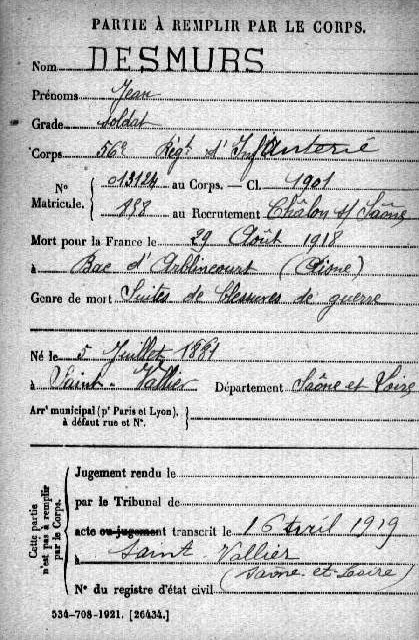 PARTIE À REMPLIR PAR LE CORPS.
Nom DESMURS
Prénoms Jean
Grade soldat
Corps 56e Régt d'Infanterie
No Matricule. 013124 au Corps. — Cl. 1901
898 au Recrutement Châlon s/ Saône
Mort pour la France le 29 Août 1918
à Bac d'Arblincourt (Aisne)
Genre de mort Suites de blessures de guerre
Né le 5 Juillet 1881
à Saint-Vallier Département Saône et Loire
Arrt municipal (pr Paris et Lyon), à défaut rue et No.
Cette partie n'est pas à remplir par le Corps.
Jugement rendu le
par le Tribunal de
acte ou jugement transcrit le 16 Avril 1919
à Saint Vallier
(Saône et Loire)
No du registre d'état civil
534-708-1921. [26434.]